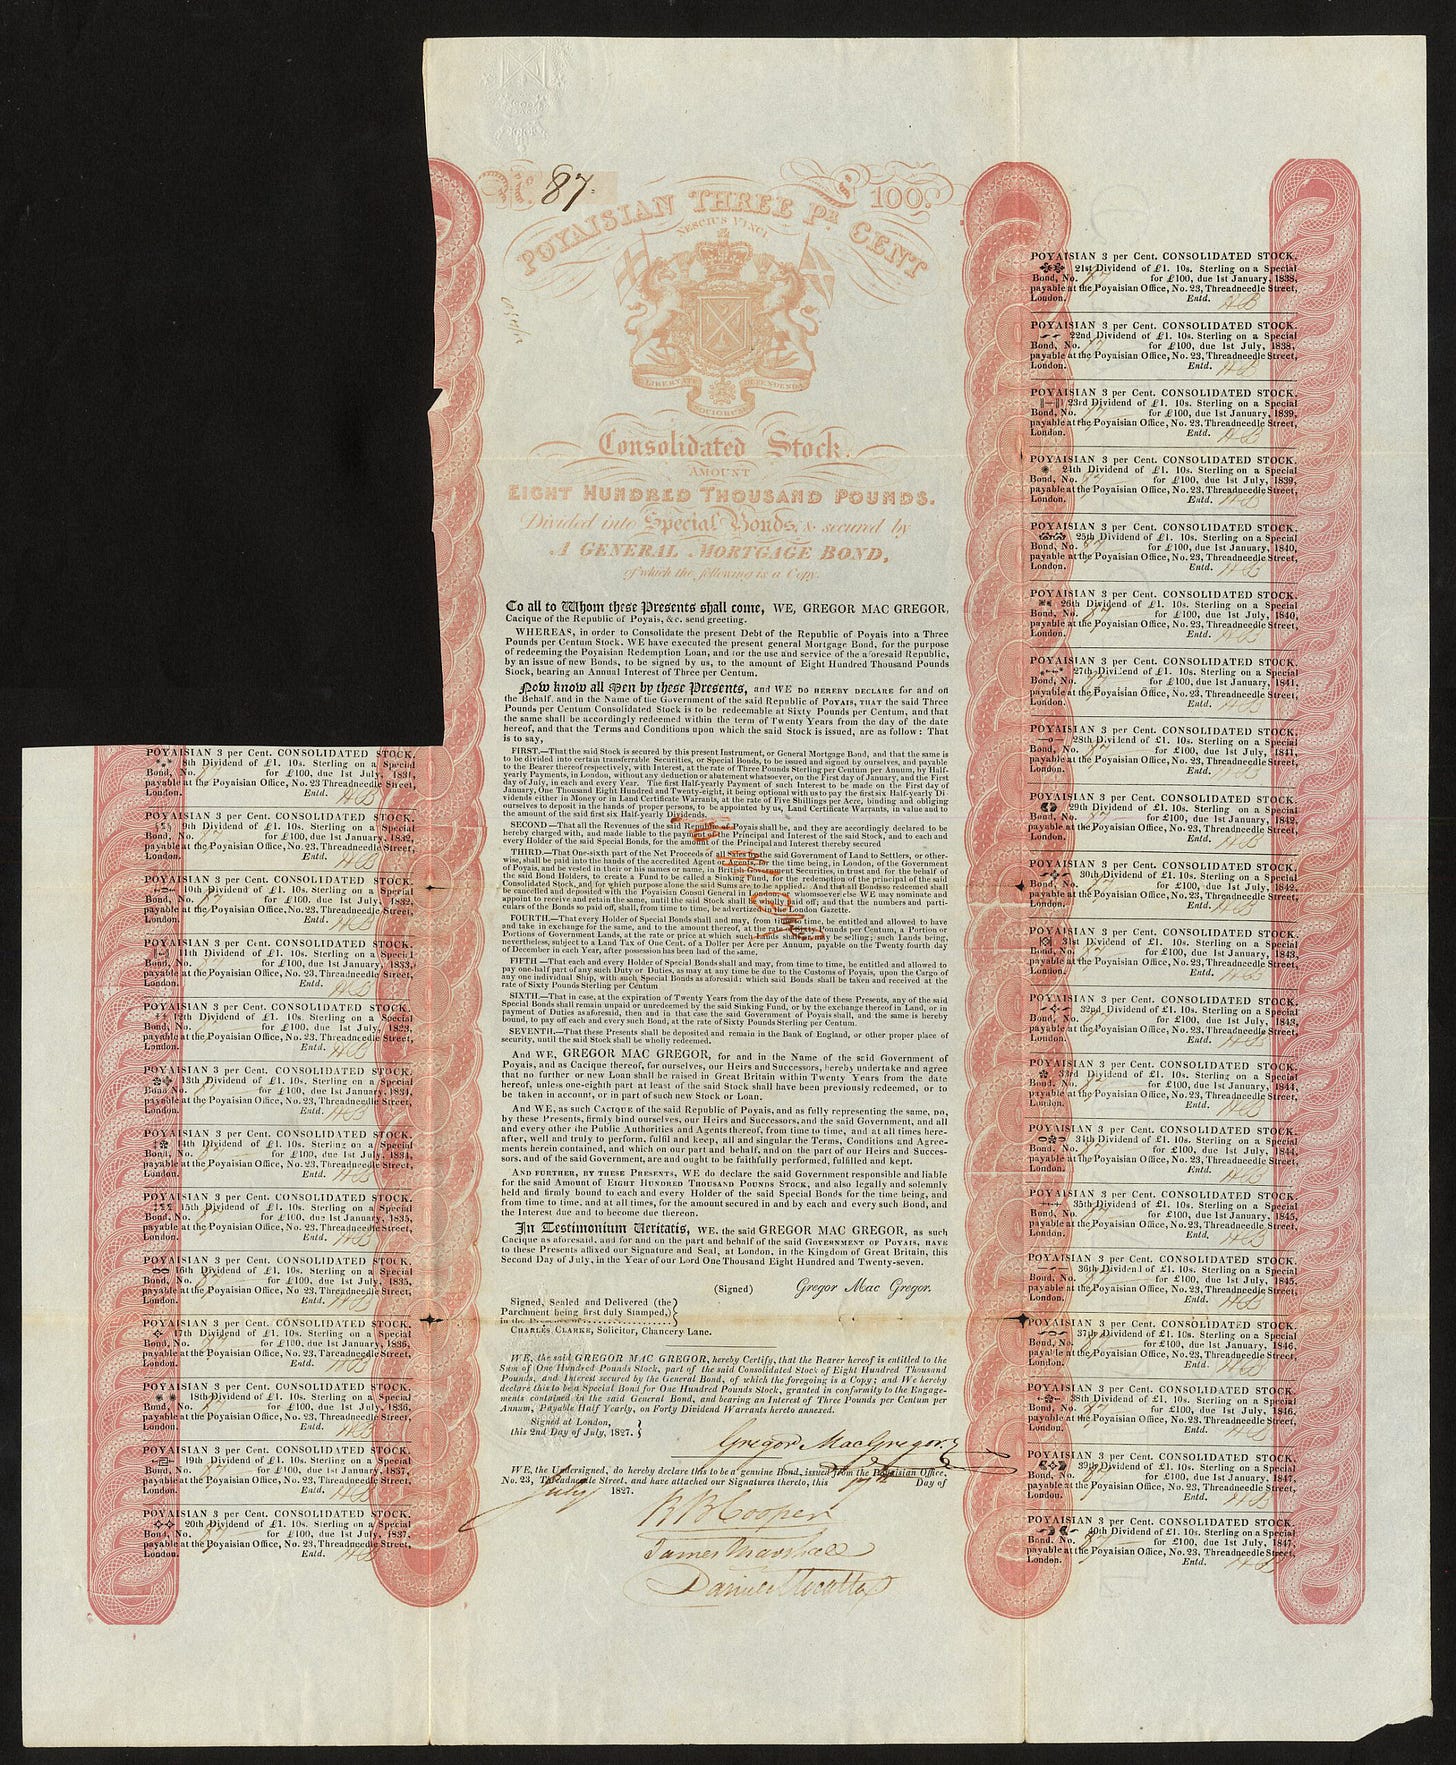 No. 87.
£ 100.
POYAISIAN THREE PR. CENT
NESCIUS VINCI
LIBERTATE DEFENDENDA
Consolidated Stock.
AMOUNT
EIGHT HUNDRED THOUSAND POUNDS.
Divided into Special Bonds, & secured by
A GENERAL MORTGAGE BOND,
of which the following is a Copy.
To all to Whom these Presents shall come, WE, GREGOR MAC GREGOR,
Cacique of the Republic of Poyais, &c. send greeting.
WHEREAS, in order to Consolidate the present Debt of the Republic of Poyais into a Three
Pounds per Centum Stock, WE have executed the present general Mortgage Bond, for the purpose
of redeeming the Poyaisian Redemption Loan, and for the use and service of the aforesaid Republic,
by an issue of new Bonds, to be signed by us, to the amount of Eight Hundred Thousand Pounds
Stock, bearing an Annual Interest of Three per Centum.
Now know all Men by these Presents, and WE DO HEREBY DECLARE for and on
the Behalf, and in the Name of the Government of the said Republic of POYAIS, THAT the said Three
Pounds per Centum Consolidated Stock is to be redeemable at Sixty Pounds per Centum, and that
the same shall be accordingly redeemed within the term of Twenty Years from the day of the date
hereof, and that the Terms and Conditions upon which the said Stock is issued, are as follow: That
is to say,
FIRST.—That the said Stock is secured by this present Instrument, or General Mortgage Bond, and that the same is
to be divided into certain transferrable Securities, or Special Bonds, to be issued and signed by ourselves, and payable
to the Bearer thereof respectively, with Interest, at the rate of Three Pounds Sterling per Centum per Annum, by Half-
yearly Payments, in London, without any deduction or abatement whatsoever, on the First day of January, and the First
day of July, in each and every Year. The first Half-yearly Payment of such Interest to be made on the First day of
January, One Thousand Eight Hundred and Twenty-eight, it being optional with us to pay the first six Half-yearly Di-
vidends either in Money or in Land Certificate Warrants, at the rate of Five Shillings per Acre, binding and obliging
ourselves to deposit in the hands of proper persons, to be appointed by us, Land Certificate Warrants, in value and to
the amount of the said first six Half-yearly Dividends.
SECOND—That all the Revenues of the said Republic of Poyais shall be, and they are accordingly declared to be
hereby charged with, and made liable to the payment of the Principal and Interest of the said Stock, and to each and
every Holder of the said Special Bonds, for the amount of the Principal and Interest thereby secured
THIRD.—That One-sixth part of the Net Proceeds of all Sales by the said Government of Land to Settlers, or other-
wise, shall be paid into the hands of the accredited Agent or Agents, for the time being, in London, of the Government
of Poyais, and be vested in their or his names or name, in British Government Securities, in trust and for the behalf of
the said Bond Holders, to create a Fund to be Called a Sinking Fund, for the redemption of the principal of the said
Consolidated Stock, and for which purpose alone the said Sums are to be applied. And that all Bonds so redeemed shall
be cancelled and deposited with the Poyaisian Consul General in London, or whomsoever else WE may nominate and
appoint to receive and retain the same, until the said Stock shall be wholly paid off; and that the numbers and parti-
culars of the Bonds so paid off, shall, from time to time, be advertized in the London Gazette.
FOURTH.—That every Holder of Special Bonds shall and may, from time to time, be entitled and allowed to have
and take in exchange for the same, and to the amount thereof, at the rate of Sixty Pounds per Centum, a Portion or
Portions of Government Lands, at the rate or price at which such Lands shall or may be selling; such Lands being,
nevertheless, subject to a Land Tax of One Cent. of a Doller per Acre per Annum, payable on the Twenty fourth day
of December in each Year, after possession has been had of the same.
FIFTH—That each and every Holder of Special Bonds shall and may, from time to time, be entitled and allowed to
pay one-half part of any such Duty or Duties, as may at any time be due to the Customs of Poyais, upon the Cargo of
any one individual Ship, with such Special Bonds as aforesaid: which said Bonds shall be taken and received at the
rate of Sixty Pounds Sterling per Centum
SIXTH.—That in case, at the expiration of Twenty Years from the day of the date of these Presents, any of the said
Special Bonds shall remain unpaid or unredeemed by the said Sinking Fund, or by the exchange thereof in Land, or in
payment of Duties as aforesaid, then and in that case the said Government of Poyais shall, and the same is hereby
bound, to pay off each and every such Bond, at the rate of Sixty Pounds Sterling per Centum.
SEVENTH.—That these Presents shall be deposited and remain in the Bank of England, or other proper place of
security, until the said Stock shall be wholly redeemed.
And WE, GREGOR MAC GREGOR, for and in the Name of the said Government of
Poyais, and as Cacique thereof, for ourselves, our Heirs and Successors, hereby undertake and agree
that no further or new Loan shall be raised in Great Britain within Twenty Years from the date
hereof, unless one-eighth part at least of the said Stock shall have been previously redeemed, or to
be taken in account, or in part of such new Stock or Loan.
And WE, as such CACIQUE of the said Republic of Poyais, and as fully representing the same, DO,
by these Presents, firmly bind ourselves, our Heirs and Successors, and the said Government, and all
and every other the Public Authorities and Agents thereof, from time to time, and at all times here-
after, well and truly to perform, fulfil and keep, all and singular the Terms, Conditions and Agree-
ments herein contained, and which on our part and behalf, and on the part of our Heirs and Succes-
sors, and of the said Government, are and ought to be faithfully performed, fulfilled and kept.
AND FURTHER, BY THESE PRESENTS, WE do declare the said Government responsible and liable
for the said Amount of EIGHT HUNDRED THOUSAND POUNDS STOCK, and also legally and solemnly
held and firmly bound to each and every Holder of the said Special Bonds for the time being, and
from time to time, and at all times, for the amount secured in and by each and every such Bond, and
the Interest due and to become due thereon.
In Testimonium Veritatis, WE, the said GREGOR MAC GREGOR, as such
Cacique as aforesaid, and for and on the part and behalf of the said GOVERNMENT OF POYAIS, HAVE
to these Presents affixed our Signature and Seal, at London, in the Kingdom of Great Britain, this
Second Day of July, in the Year of our Lord One Thousand Eight Hundred and Twenty-seven.
(Signed) Gregor Mac Gregor.
Signed, Sealed and Delivered (the
Parchment being first duly Stamped,)
in the Presence of
CHARLES CLARKE, Solicitor, Chancery Lane.
WE, the said GREGOR MAC GREGOR, hereby Certify, that the Bearer hereof is entitled to the
Sum of One Hundred Pounds Stock, part of the said Consolidated Stock of Eight Hundred Thousand
Pounds, and Interest secured by the General Bond, of which the foregoing is a Copy; and We hereby
declare this to be a Special Bond for One Hundred Pounds Stock, granted in conformity to the Engage-
ments contained in the said General Bond, and bearing an Interest of Three Pounds per Centum per
Annum, Payable Half Yearly, on Forty Dividend Warrants hereto annexed.
Signed at London,
this 2nd Day of July, 1827.
Gregor MacGregor
WE, the Undersigned, do hereby declare this to be a genuine Bond, issued from the Poyaisian Office,
No. 23, Threadneedle Street, and have attached our Signatures thereto, this Day of
July 1827.
James Marshall
POYAISIAN 3 per Cent. CONSOLIDATED STOCK.
8th Dividend of £1. 10s. Sterling on a Special
Bond, No. 87 for £100, due 1st July, 1831,
payable at the Poyaisian Office, No. 23 Threadneedle Street,
London. Entd.
POYAISIAN 3 per Cent. CONSOLIDATED STOCK.
9th Dividend of £1. 10s. Sterling on a Special
Bond, No. 87 for £100, due 1st January, 1832,
payable at the Poyaisian Office, No. 23, Threadneedle Street,
London. Entd.
POYAISIAN 3 per Cent. CONSOLIDATED STOCK.
10th Dividend of £1. 10s. Sterling on a Special
Bond, No. 87 for £100, due 1st July, 1832,
payable at the Poyaisian Office, No. 23, Threadneedle Street,
London. Entd.
POYAISIAN 3 per Cent. CONSOLIDATED STOCK.
11th Dividend of £1. 10s. Sterling on a Special
Bond, No. 87 for £100, due 1st January, 1833,
payable at the Poyaisian Office, No. 23, Threadneedle Street,
London. Entd.
POYAISIAN 3 per Cent. CONSOLIDATED STOCK.
12th Dividend of £1. 10s. Sterling on a Special
Bond, No. 87 for £100, due 1st July, 1833,
payable at the Poyaisian Office, No. 23, Threadneedle Street,
London. Entd.
POYAISIAN 3 per Cent. CONSOLIDATED STOCK.
13th Dividend of £1. 10s. Sterling on a Special
Bond, No. 87 for £100, due 1st January, 1834,
payable at the Poyaisian Office, No. 23, Threadneedle Street,
London. Entd.
POYAISIAN 3 per Cent. CONSOLIDATED STOCK.
14th Dividend of £1. 10s. Sterling on a Special
Bond, No. 87 for £100, due 1st July, 1834,
payable at the Poyaisian Office, No. 23, Threadneedle Street,
London. Entd.
POYAISIAN 3 per Cent. CONSOLIDATED STOCK.
15th Dividend of £1. 10s. Sterling on a Special
Bond, No. 87 for £100, due 1st January, 1835,
payable at the Poyaisian Office, No. 23, Threadneedle Street,
London. Entd.
POYAISIAN 3 per Cent. CONSOLIDATED STOCK.
16th Dividend of £1. 10s. Sterling on a Special
Bond, No. 87 for £100, due 1st July, 1835,
payable at the Poyaisian Office, No. 23, Threadneedle Street,
London. Entd.
POYAISIAN 3 per Cent. CONSOLIDATED STOCK.
17th Dividend of £1. 10s. Sterling on a Special
Bond, No. 87 for £100, due 1st January, 1836,
payable at the Poyaisian Office, No. 23, Threadneedle Street,
London. Entd.
POYAISIAN 3 per Cent. CONSOLIDATED STOCK.
18th Dividend of £1. 10s. Sterling on a Special
Bond, No. 87 for £100, due 1st July, 1836,
payable at the Poyaisian Office, No. 23, Threadneedle Street,
London. Entd.
POYAISIAN 3 per Cent. CONSOLIDATED STOCK.
19th Dividend of £1. 10s. Sterling on a Special
Bond, No. 87 for £100, due 1st January, 1837,
payable at the Poyaisian Office, No. 23, Threadneedle Street,
London. Entd.
POYAISIAN 3 per Cent. CONSOLIDATED STOCK.
20th Dividend of £1. 10s. Sterling on a Special
Bond, No. 87 for £100, due 1st July, 1837,
payable at the Poyaisian Office, No. 23, Threadneedle Street,
London. Entd.
POYAISIAN 3 per Cent. CONSOLIDATED STOCK.
21st Dividend of £1. 10s. Sterling on a Special
Bond, No. 87 for £100, due 1st January, 1838,
payable at the Poyaisian Office, No. 23, Threadneedle Street,
London. Entd.
POYAISIAN 3 per Cent. CONSOLIDATED STOCK.
22nd Dividend of £1. 10s. Sterling on a Special
Bond, No. 87 for £100, due 1st July, 1838,
payable at the Poyaisian Office, No. 23, Threadneedle Street,
London. Entd.
POYAISIAN 3 per Cent. CONSOLIDATED STOCK.
23rd Dividend of £1. 10s. Sterling on a Special
Bond, No. 87 for £100, due 1st January, 1839,
payable at the Poyaisian Office, No. 23, Threadneedle Street,
London. Entd.
POYAISIAN 3 per Cent. CONSOLIDATED STOCK.
24th Dividend of £1. 10s. Sterling on a Special
Bond, No. 87 for £100, due 1st July, 1839,
payable at the Poyaisian Office, No. 23, Threadneedle Street,
London. Entd.
POYAISIAN 3 per Cent. CONSOLIDATED STOCK.
25th Dividend of £1. 10s. Sterling on a Special
Bond, No. 87 for £100, due 1st January, 1840,
payable at the Poyaisian Office, No. 23, Threadneedle Street,
London. Entd.
POYAISIAN 3 per Cent. CONSOLIDATED STOCK.
26th Dividend of £1. 10s. Sterling on a Special
Bond, No. 87 for £100, due 1st July, 1840,
payable at the Poyaisian Office, No. 23, Threadneedle Street,
London. Entd.
POYAISIAN 3 per Cent. CONSOLIDATED STOCK.
27th Dividend of £1. 10s. Sterling on a Special
Bond, No. 87 for £100, due 1st January, 1841,
payable at the Poyaisian Office, No. 23, Threadneedle Street,
London. Entd.
POYAISIAN 3 per Cent. CONSOLIDATED STOCK.
28th Dividend of £1. 10s. Sterling on a Special
Bond, No. 87 for £100, due 1st July, 1841,
payable at the Poyaisian Office, No. 23, Threadneedle Street,
London. Entd.
POYAISIAN 3 per Cent. CONSOLIDATED STOCK.
29th Dividend of £1. 10s. Sterling on a Special
Bond, No. 87 for £100, due 1st January, 1842,
payable at the Poyaisian Office, No. 23, Threadneedle Street,
London. Entd.
POYAISIAN 3 per Cent. CONSOLIDATED STOCK.
30th Dividend of £1. 10s. Sterling on a Special
Bond, No. 87 for £100, due 1st July, 1842,
payable at the Poyaisian Office, No. 23, Threadneedle Street,
London. Entd.
POYAISIAN 3 per Cent. CONSOLIDATED STOCK.
31st Dividend of £1. 10s. Sterling on a Special
Bond, No. 87 for £100, due 1st January, 1843,
payable at the Poyaisian Office, No. 23, Threadneedle Street,
London. Entd.
POYAISIAN 3 per Cent. CONSOLIDATED STOCK.
32nd Dividend of £1. 10s. Sterling on a Special
Bond, No. 87 for £100, due 1st July, 1843,
payable at the Poyaisian Office, No. 23, Threadneedle Street,
London. Entd.
POYAISIAN 3 per Cent. CONSOLIDATED STOCK.
33rd Dividend of £1. 10s. Sterling on a Special
Bond, No. 87 for £100, due 1st January, 1844,
payable at the Poyaisian Office, No. 23, Threadneedle Street,
London. Entd.
POYAISIAN 3 per Cent. CONSOLIDATED STOCK.
34th Dividend of £1. 10s. Sterling on a Special
Bond, No. 87 for £100, due 1st July, 1844,
payable at the Poyaisian Office, No. 23, Threadneedle Street,
London. Entd.
POYAISIAN 3 per Cent. CONSOLIDATED STOCK.
35th Dividend of £1. 10s. Sterling on a Special
Bond, No. 87 for £100, due 1st January, 1845,
payable at the Poyaisian Office, No. 23, Threadneedle Street,
London. Entd.
POYAISIAN 3 per Cent. CONSOLIDATED STOCK.
36th Dividend of £1. 10s. Sterling on a Special
Bond, No. 87 for £100, due 1st July, 1845,
payable at the Poyaisian Office, No. 23, Threadneedle Street,
London. Entd.
POYAISIAN 3 per Cent. CONSOLIDATED STOCK.
37th Dividend of £1. 10s. Sterling on a Special
Bond, No. 87 for £100, due 1st January, 1846,
payable at the Poyaisian Office, No. 23, Threadneedle Street,
London. Entd.
POYAISIAN 3 per Cent. CONSOLIDATED STOCK.
38th Dividend of £1. 10s. Sterling on a Special
Bond, No. 87 for £100, due 1st July, 1846,
payable at the Poyaisian Office, No. 23, Threadneedle Street,
London. Entd.
POYAISIAN 3 per Cent. CONSOLIDATED STOCK.
39th Dividend of £1. 10s. Sterling on a Special
Bond, No. 87 for £100, due 1st January, 1847,
payable at the Poyaisian Office, No. 23, Threadneedle Street,
London. Entd.
POYAISIAN 3 per Cent. CONSOLIDATED STOCK.
40th Dividend of £1. 10s. Sterling on a Special
Bond, No. 87 for £100, due 1st July, 1847,
payable at the Poyaisian Office, No. 23, Threadneedle Street,
London. Entd.